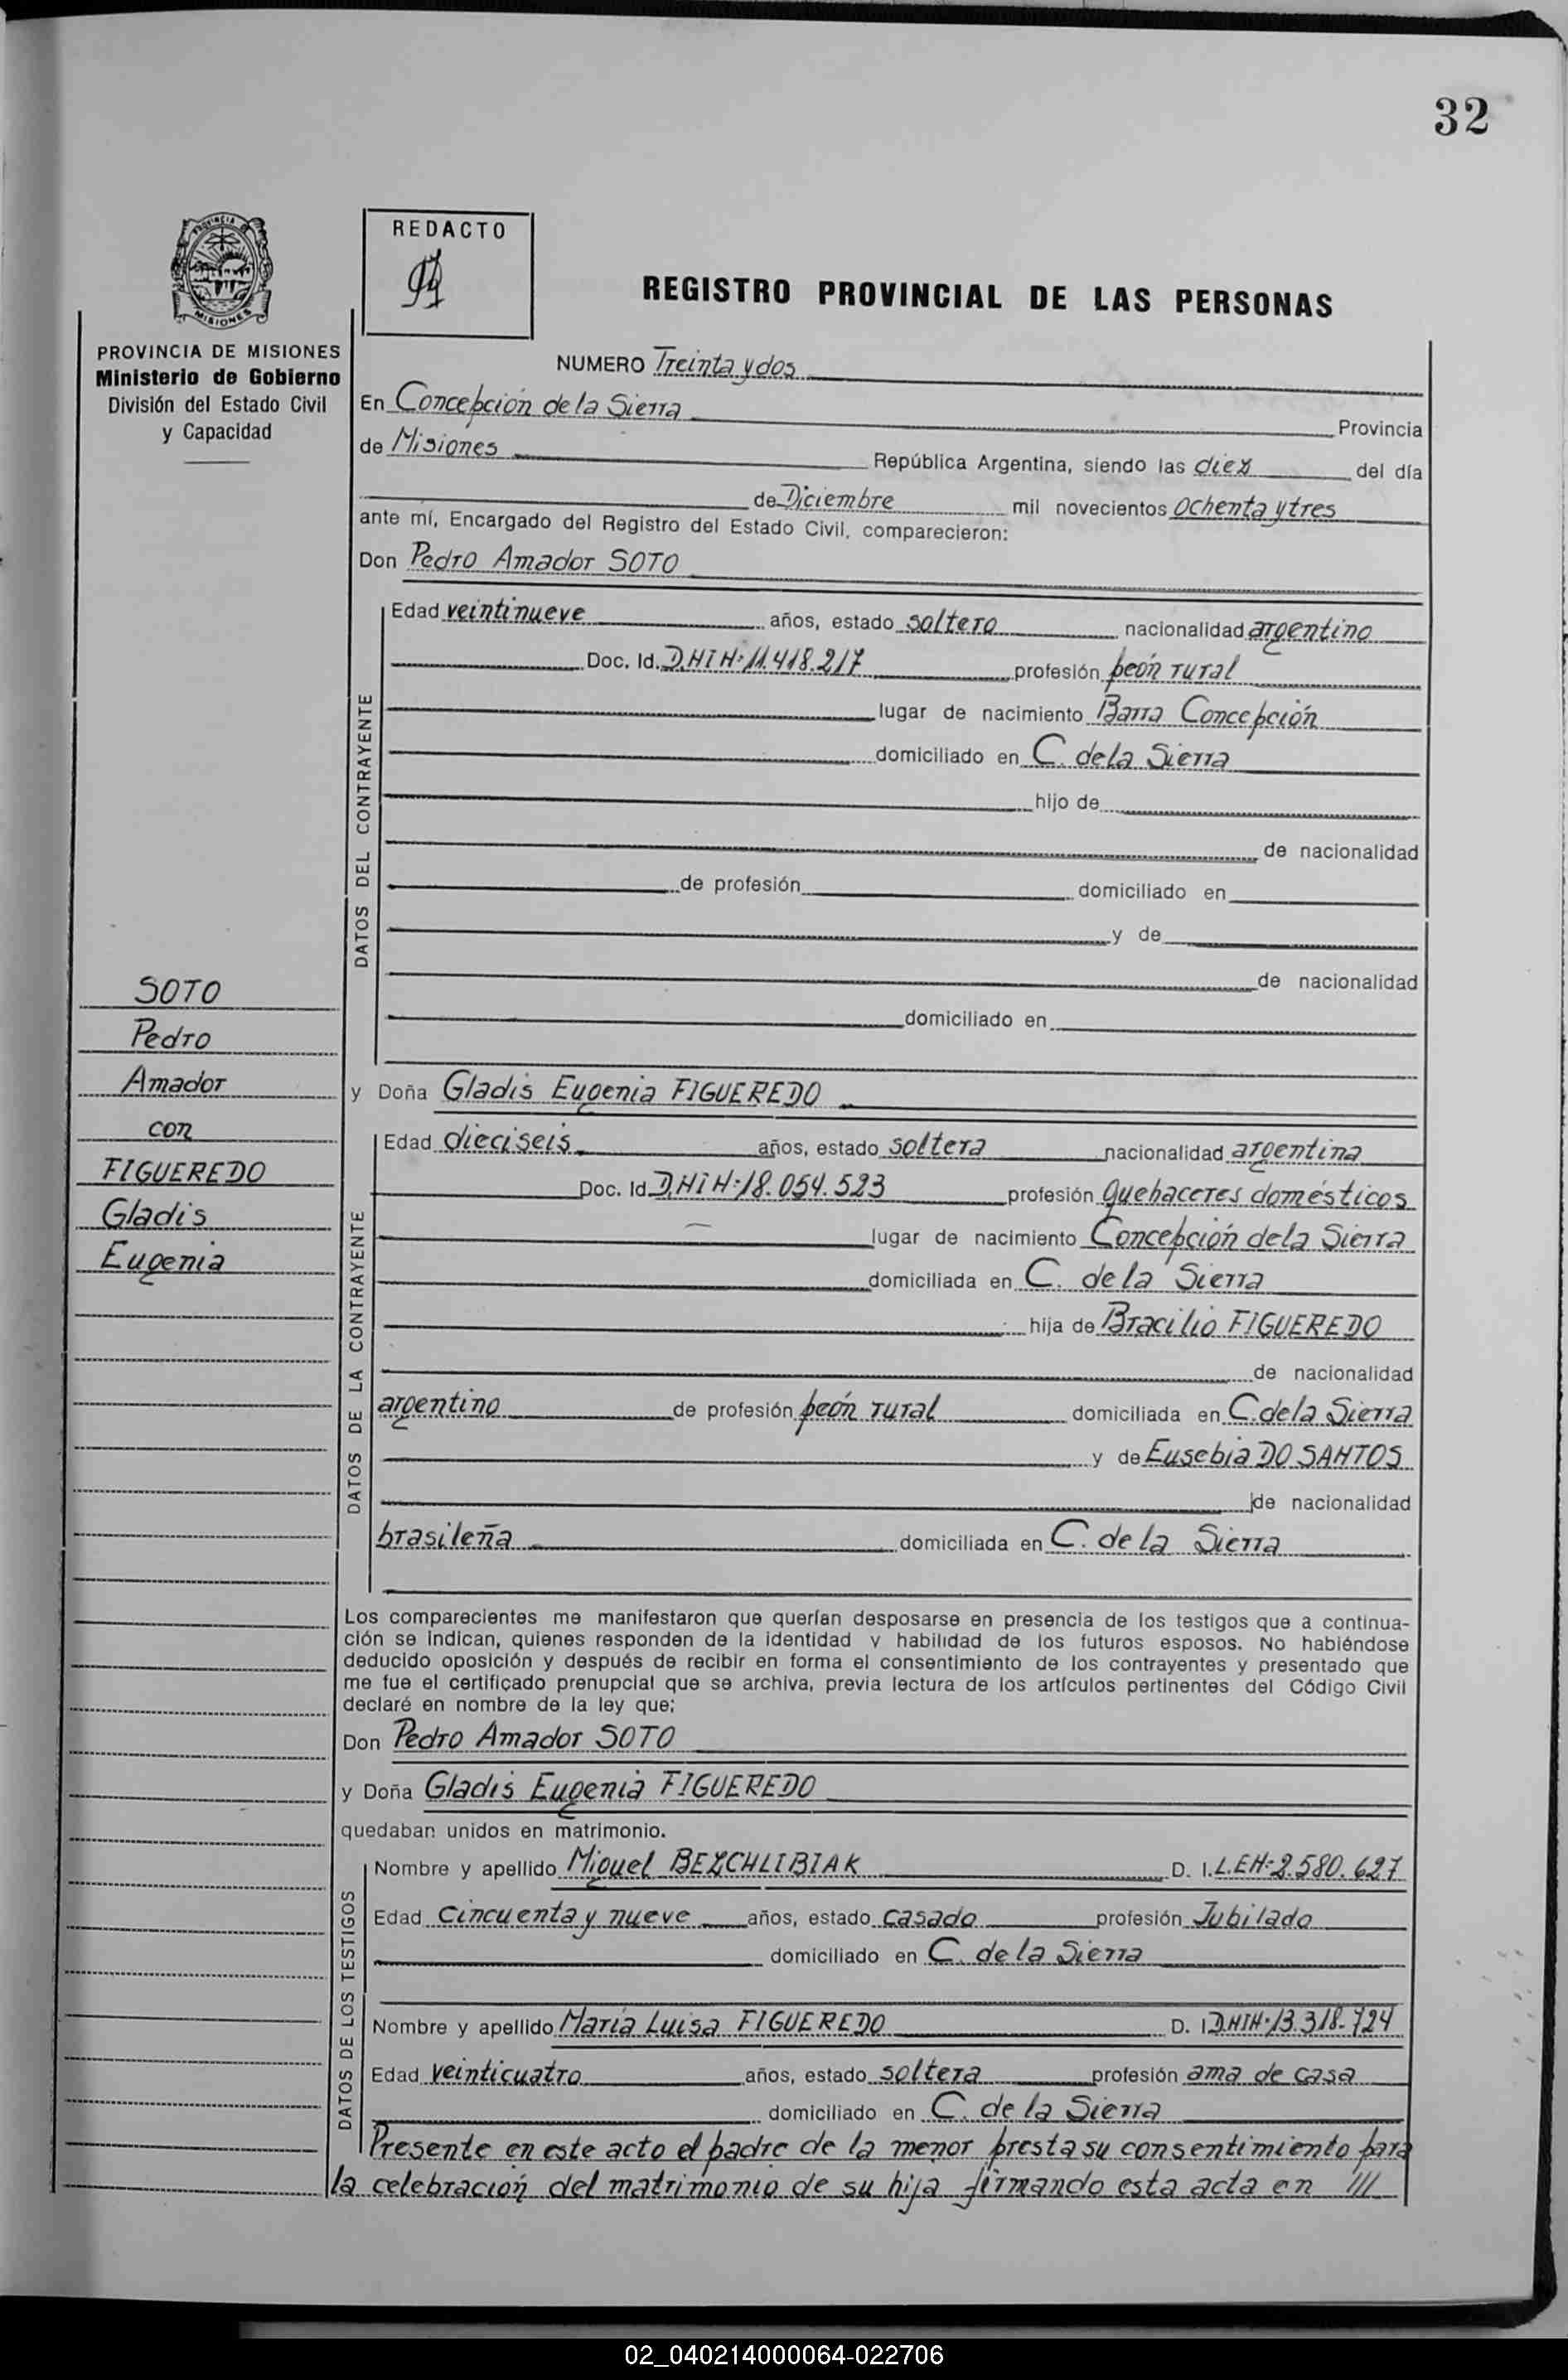 32
PROVINCIA DE MISIONES
Ministerio de Gobierno
División del Estado Civil
y Capacidad
REDACTO
REGISTRO PROVINCIAL DE LAS PERSONAS
NUMERO Treinta y dos
En Concepción de la Sierra Provincia
de Misiones República Argentina, siendo las diez del día
de Diciembre mil novecientos ochenta y tres
ante mí, Encargado del Registro del Estado Civil, comparecieron:
Don Pedro Amador SOTO
DATOS DEL CONTRAYENTE
Edad veintinueve años, estado soltero nacionalidad argentino
Doc. Id. D.NI N: 11.418.217 profesión peón rural
lugar de nacimiento Barra Concepción
domiciliado en C. de la Sierra
hijo de
de nacionalidad
de profesión domiciliado en
y de
de nacionalidad
domiciliado en
SOTO
Pedro
Amador
con
FIGUEREDO
Gladis
Eugenia
y Doña Gladis Eugenia FIGUEREDO
DATOS DE LA CONTRAYENTE
Edad dieciseis años, estado soltera nacionalidad argentina
Doc. Id D.NI N: 18.054.523 profesión quehaceres domésticos
lugar de nacimiento Concepción de la Sierra
domiciliada en C. de la Sierra
hija de Bracilio FIGUEREDO
de nacionalidad
argentino de profesión peón rural domiciliada en C. de la Sierra
y de Eusebia DO SANTOS
de nacionalidad
brasileña domiciliada en C. de la Sierra
Los comparecientes me manifestaron que querían desposarse en presencia de los testigos que a continua-
ción se indican, quienes responden de la identidad y habilidad de los futuros esposos. No habiéndose
deducido oposición y después de recibir en forma el consentimiento de los contrayentes y presentado que
me fue el certificado prenupcial que se archiva, previa lectura de los artículos pertinentes del Código Civil
declaré en nombre de la ley que:
Don Pedro Amador SOTO
y Doña Gladis Eugenia FIGUEREDO
quedaban unidos en matrimonio.
DATOS DE LOS TESTIGOS
Nombre y apellido Miguel BEZCHLIBIAK D. I. L.EN: 2.580.627
Edad cincuenta y nueve años, estado casado profesión Jubilado
domiciliado en C. de la Sierra
Nombre y apellido María Luisa FIGUEREDO D. I D.NIN: 13.318.724
Edad veinticuatro años, estado soltera profesión ama de casa
domiciliado en C. de la Sierra
Presente en este acto el padre de la menor presta su consentimiento para
la celebración del matrimonio de su hija firmando esta acta en ///
02_040214000064-022706